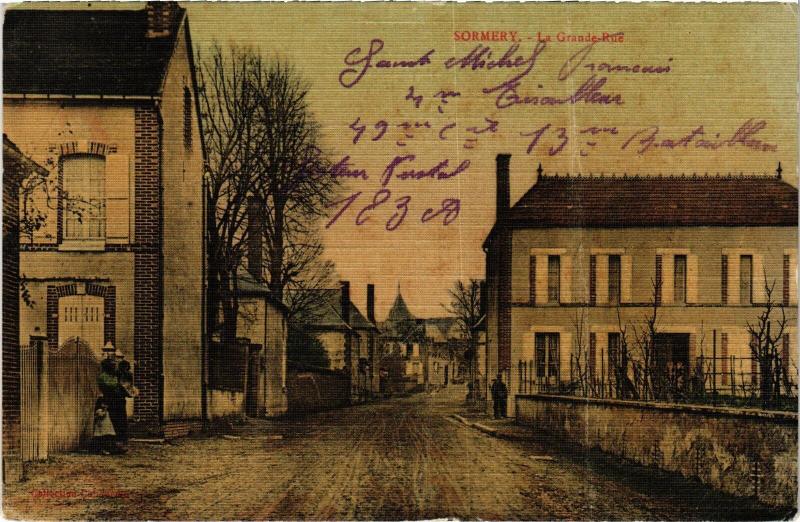 SORMERY. - La Grande-Rue
Saint Michel François
4me Tirailleur
49me Cie 13me Bataillon
Secteur Postal
183 A
Collection